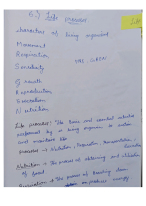 6.) Life process
characters of living organism.
Movement
Respiration
Sensitivity
Growth
Reproduction
Excretion
Nutrition
Life process: The basic and essential activities
performed by a living organism to sustain
and maintain life.
Processes → Nutrition, Respiration, Transportation,
Nutrition → The process of obtaining and utilization
of food.
Respiration → The process of breaking down
to produce energy